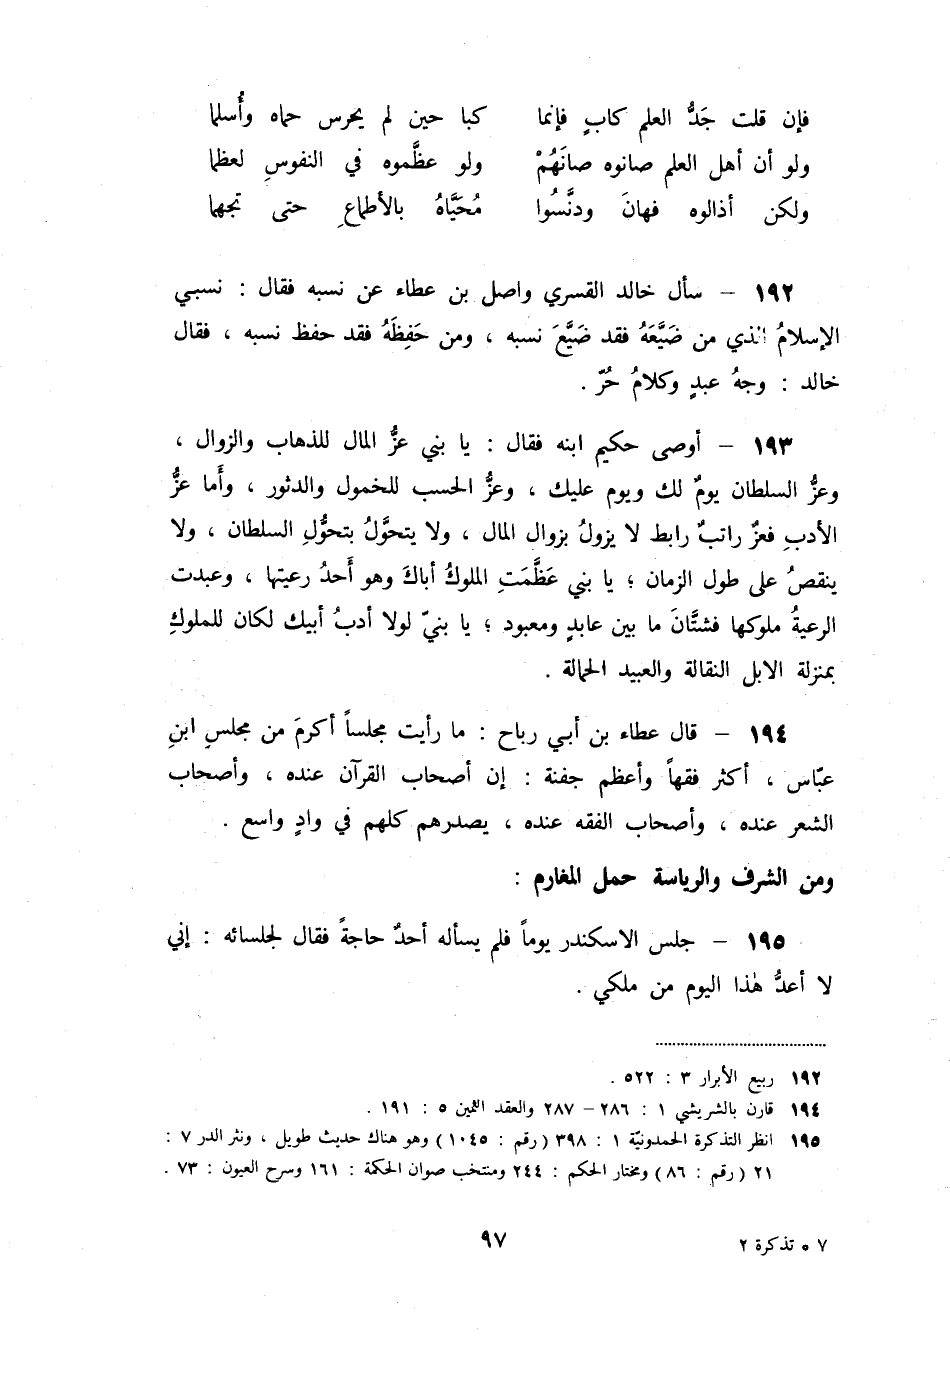 فإن قلت جَدُّ العلم كابٍ فإنما كبا حين لم يحرس حماه وأُسلما
ولو أن أهل العلم صانوه صانَهُمْ ولو عظَّموه في النفوسِ لعظما
ولكن أذالوه فهانَ ودنَّسُوا مُحَيَّاهُ بالأطماعِ حتى تجهما
١٩٢ – سأل خالد القسري واصل بن عطاء عن نسبه فقال : نسبي
الإسلامُ الذي من ضَيَّعَهُ فقد ضَيَّعَ نسبه ، ومن حَفِظَهُ فقد حفظ نسبه ، فقال
خالد : وجهُ عبدٍ وكلامُ حُرّ .
١٩٣ – أوصى حكيم ابنه فقال : يا بني عزُّ المال للذهاب والزوال ،
وعزُّ السلطان يومٌ لك ويوم عليك ، وعزُّ الحسب للخمول والدثور ، وأَما عزُّ
الأدبِ فعزٌ راتبٌ رابط لا يزولُ بزوال المال ، ولا يتحوَّلُ بتحوُّلِ السلطان ، ولا
ينقصُ على طول الزمان ؛ يا بني عَظَّمَتِ الملوكُ أباكَ وهو أَحدُ رعيتها ، وعبدت
الرعيةُ ملوكها فشتَّانَ ما بين عابدٍ ومعبود ؛ يا بنيّ لولا أدبُ أبيك لكان للملوكِ
بمنزلة الابل النقالة والعبيد الحمالة .
١٩٤ – قال عطاء بن أبي رباح : ما رأيت مجلساً أكرمَ من مجلسِ ابنِ
عبّاس ، أكثر فقهاً وأعظم جفنة : إن أصحاب القرآن عنده ، وأصحاب
الشعر عنده ، وأصحاب الفقه عنده ، يصدرهم كلهم في وادٍ واسع .
ومن الشرف والرياسة حمل المغارم :
١٩٥ – جلس الاسكندر يوماً فلم يسأله أحدٌ حاجةً فقال لجلسائه : إني
لا أعدُّ هٰذا اليوم من ملكي .
١٩٢ ربيع الأبرار ٣ : ٥٢٢ .
١٩٤ قارن بالشريشي ١ : ٢٨٦ – ٢٨٧ والعقد الثمين ٥ : ١٩١ .
١٩٥ انظر التذكرة الحمدونيّة ١ : ٣٩٨ ( رقم : ١٠٤٥ ) وهو هناك حديث طويل ، ونثر الدر ٧ :
٢١ ( رقم : ٨٦ ) ومختار الحكم : ٢٤٤ ومنتخب صوان الحكمة : ١٦١ وسرح العيون : ٧٣ .
٧ ه تذكرة ٢ ٩٧